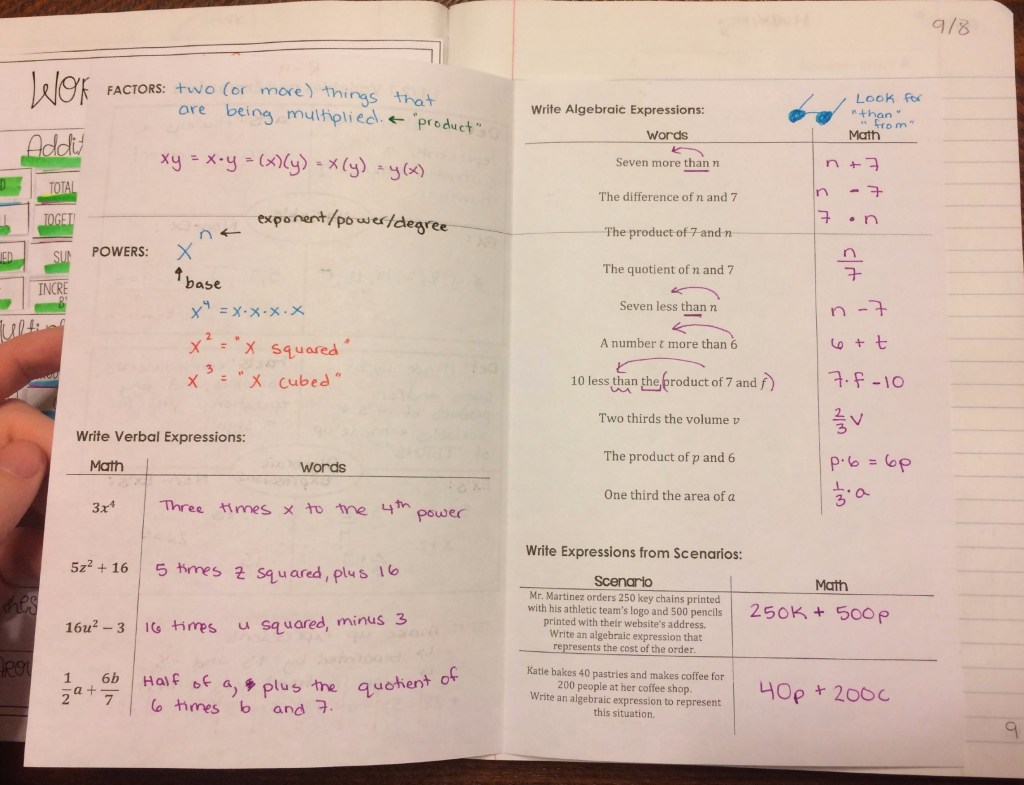 9/8
WOR
Addit
TOTAL
TOGET
SUM
INCRE
FACTORS: two (or more) things that
are being multiplied. ← "product"
xy = x·y = (x)(y) = x(y) = y(x)
POWERS:
xⁿ ← exponent/power/degree
↑ base
x⁴ = x·x·x·x
x² = "x squared"
x³ = "x cubed"
Write Verbal Expressions:
Math Words
3x⁴ Three times x to the 4th power
5z² + 16 5 times z squared, plus 16
16u² – 3 16 times u squared, minus 3
1/2 a + 6b/7 Half of a, plus the quotient of
6 times b and 7.
Write Algebraic Expressions:
Look for
"than"
"from"
Words Math
Seven more than n n + 7
The difference of n and 7 n - 7
The product of 7 and n 7 • n
The quotient of n and 7 n/7
Seven less than n n - 7
A number t more than 6 6 + t
10 less than the (product of 7 and f) 7·f - 10
Two thirds the volume v 2/3 v
The product of p and 6 p·6 = 6p
One third the area of a 1/3 · a
Write Expressions from Scenarios:
Scenario Math
Mr. Martinez orders 250 key chains printed
with his athletic team's logo and 500 pencils
printed with their website's address.
Write an algebraic expression that
represents the cost of the order.
250K + 500p
Katie bakes 40 pastries and makes coffee for
200 people at her coffee shop.
Write an algebraic expression to represent
this situation.
40p + 200c
9